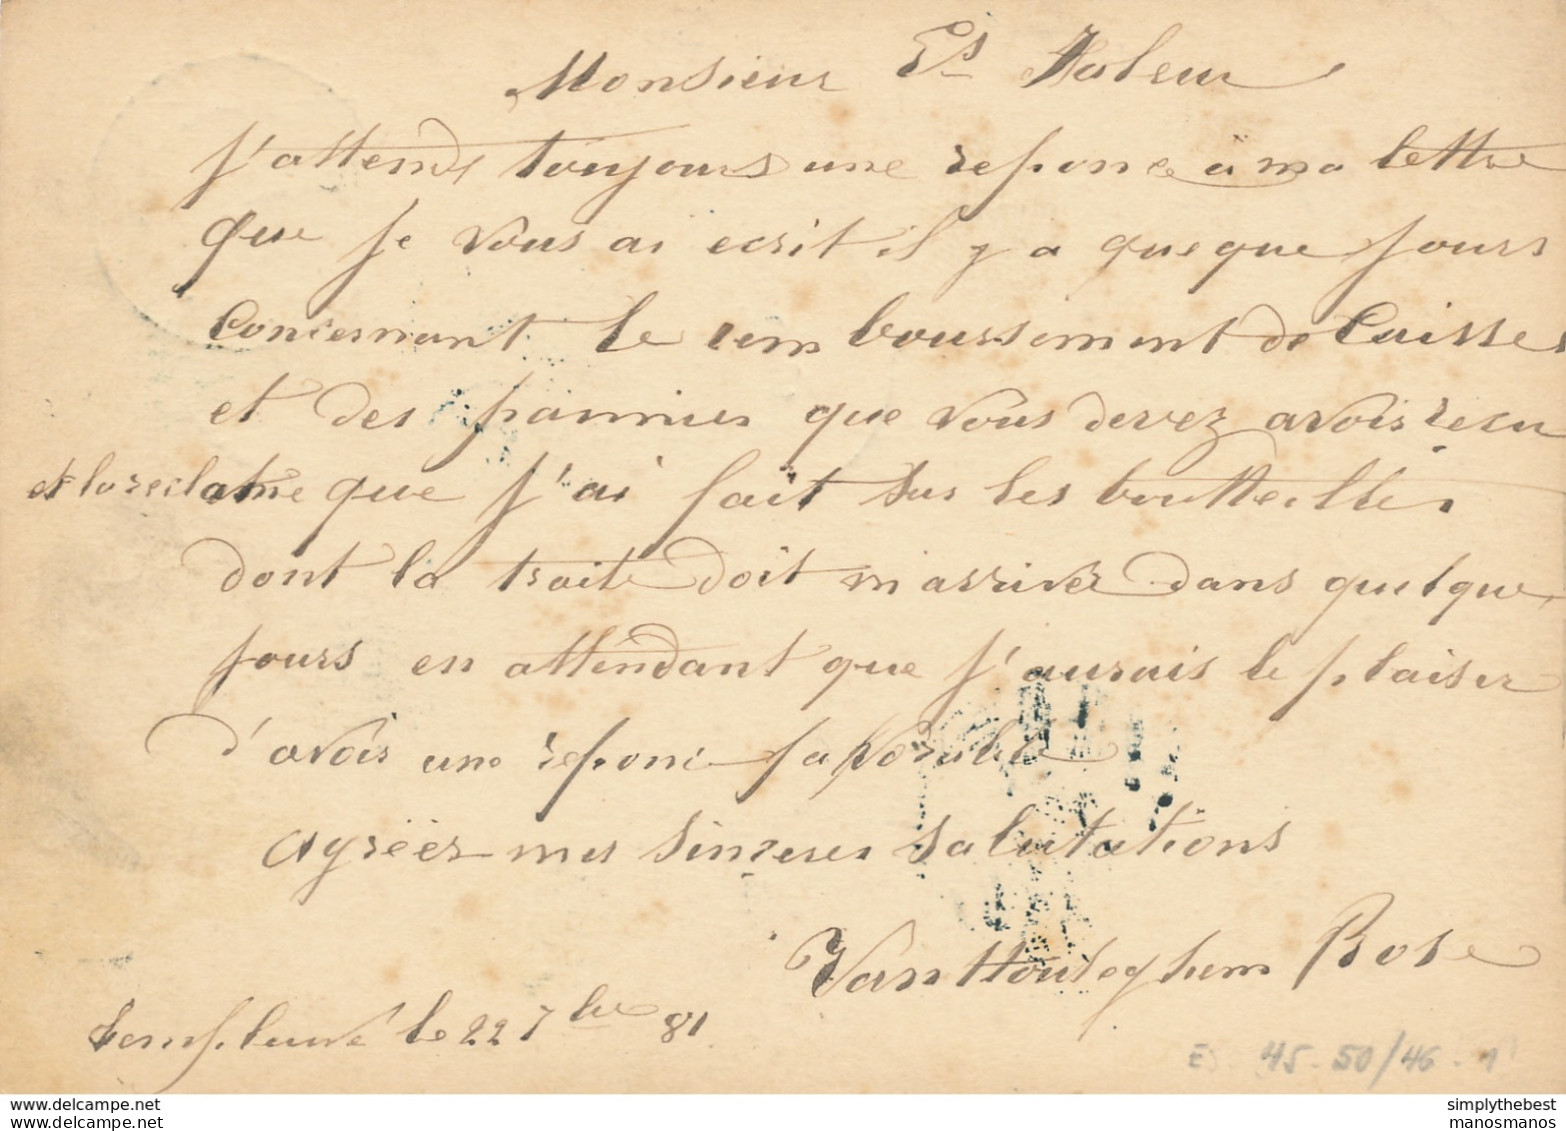 Monsieur Es Haleur
j'attends toujours une reponce a ma lettre
que je vous ai ecrit il y a queque jours
Concernant le remboursement de Caisses
et des panniers que vous devez avoir recu
et la reclame que j'ai fait sur les boutteilles
dont la traite doit m arriver dans quelque
jours en attendant que j'aurais le plaiser
d'avoir une reponce favorable
Agréér mes sinceres salutations
Van Houteghem Rose
Templeuve le 22 7bre 81
E 45-50/46-1
simplythebest
manosmanos